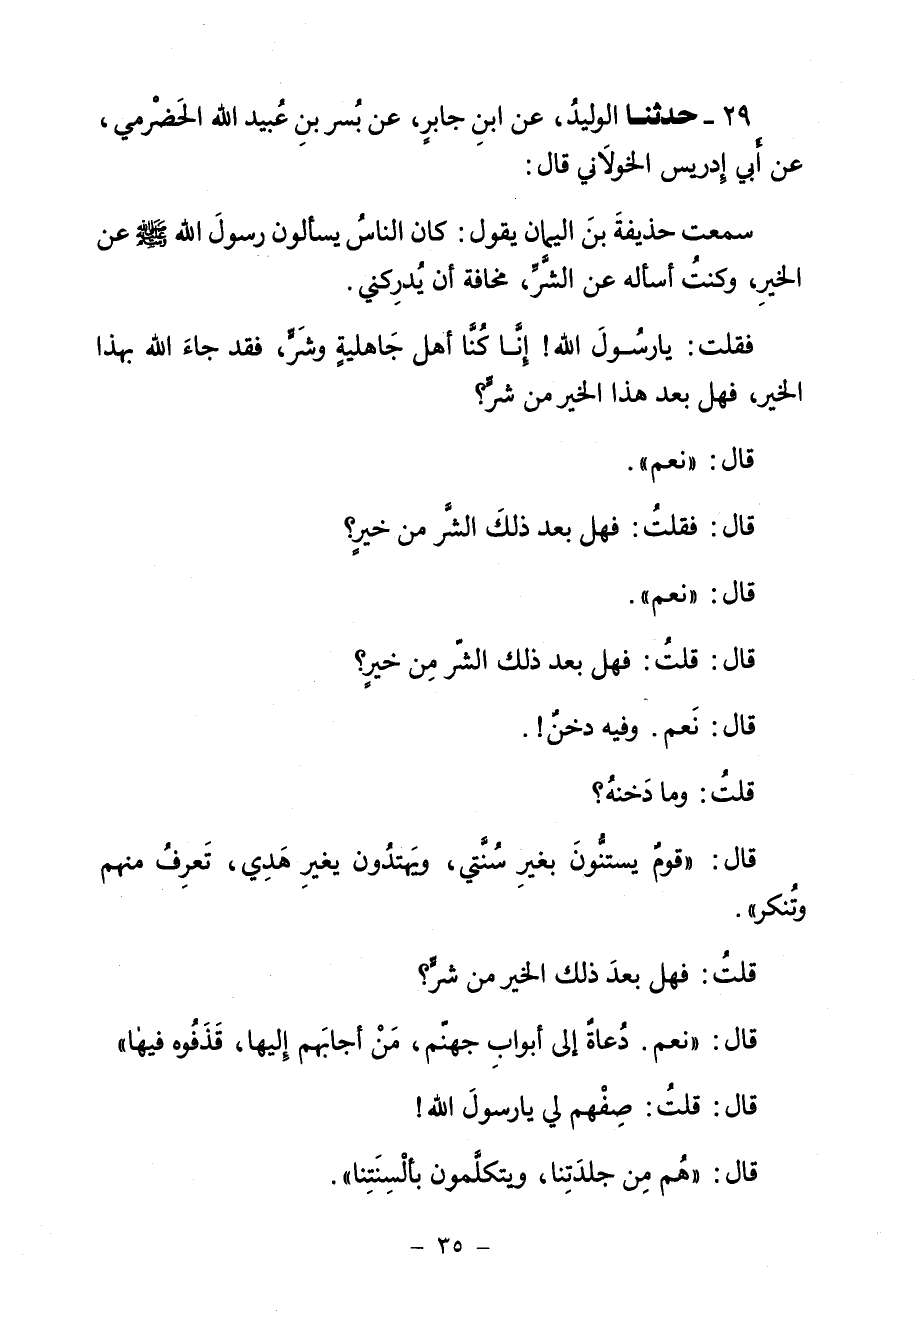 ٢٩ ـ حدثنـا الوليدُ، عن ابنِ جابرٍ، عن بُسر بنِ عُبيد الله الحَضْرمي،
عن أَبي إِدريس الخولَاني قال:
سمعت حذيفةَ بنَ اليمان يقول: كان الناسُ يسألون رسولَ الله ﷺ عن
الخيرِ، وكنتُ أسأله عن الشَّرِّ، مخافة أن يُدرِكني.
فقلت: يارسُـولَ الله! إِنَّـا كُنَّا أهل جَاهليةٍ وشَرٍّ، فقد جاءَ الله بهذا
الخير، فهل بعد هذا الخير من شرٍّ؟
قال: «نعم».
قال: فقلتُ: فهل بعد ذلكَ الشَّر من خيرٍ؟
قال: «نعم».
قال: قلتُ: فهل بعد ذلك الشّر مِن خيرٍ؟
قال: نَعم. وفيه دخنٌ!.
قلتُ: وما دَخنهُ؟
قال: «قومٌ يستنُّونَ بغيرِ سُنَّتي، ويَهتدُون يغيرِ هَدِي، تَعرِفُ منهم
وتُنكر».
قلتُ: فهل بعدَ ذلك الخير من شرٍّ؟
قال: «نعم. دُعاةٌ إلى أبوابِ جهنّم، مَنْ أجابَهم إِليها، قَذَفُوه فيها»
قال: قلتُ: صِفْهم لي يارسولَ الله!
قال: «هُم مِن جلدَتِنا، ويتكلَّمون بألْسِنَتِنا».
– ٣٥ –